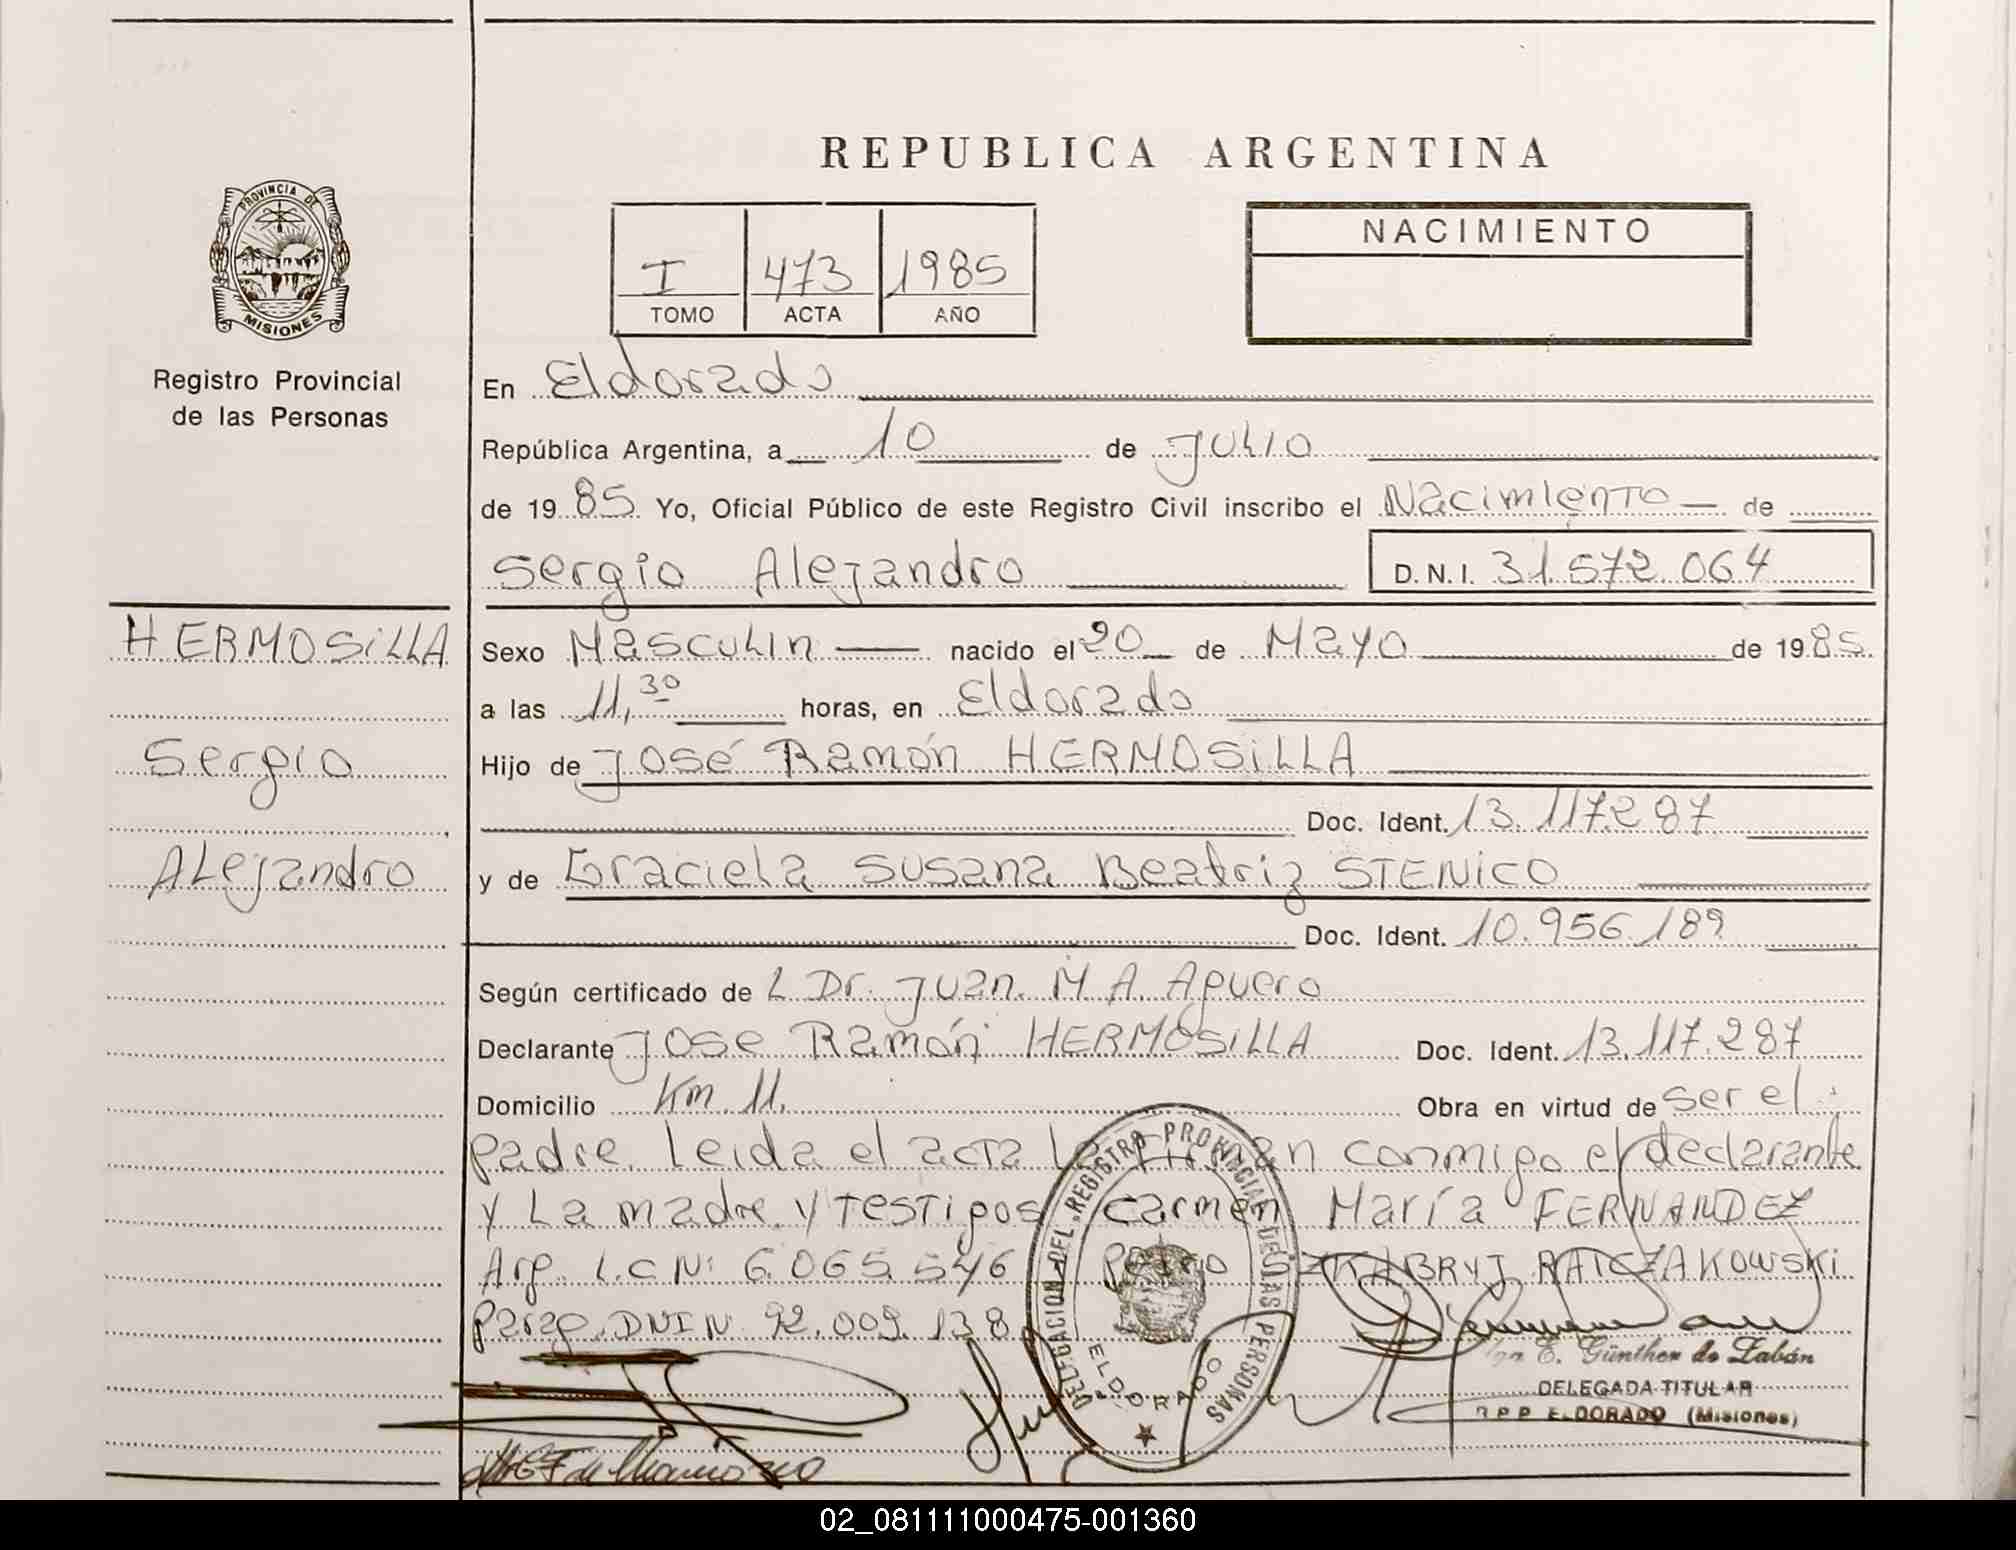 REPUBLICA ARGENTINA
PROVINCIA DE
MISIONES
Registro Provincial
de las Personas
NACIMIENTO
I 473 1985
TOMO ACTA AÑO
En Eldorado
República Argentina, a 10 de Julio
de 1985 Yo, Oficial Público de este Registro Civil inscribo el Nacimiento de
Sergio Alejandro D.N.I. 31.572.064
HERMOSiLLA
Sergio
Alejandro
Sexo Masculin nacido el 20 de Mayo de 1985
a las 11,30 horas, en Eldorado
Hijo de José Ramón HERMOSiLLA
Doc. Ident. 13.117.287
y de Graciela Susana Beatriz STENICO
Doc. Ident. 10.956.189
Según certificado de L Dr. Juan M A Aguero
Declarante José Ramón HERMOSiLLA Doc. Ident. 13.117.287
Domicilio Km. 11. Obra en virtud de ser el
padre. Leida el acta La firman conmigo el declarante
y La madre y testigos Carmen María FERNANDEZ
Arg. L.C Nº 6.065.546 Pedro RATCZAKOWSKi
Parag. DNI N. 92.009.138
DELEGACION DEL REGISTRO PROVINCIAL DE LAS PERSONAS
ELDORADO
E. Günther de Zabán
DELEGADA TITULAR
R.P.P. ELDORADO (Misiones)
02_081111000475-001360